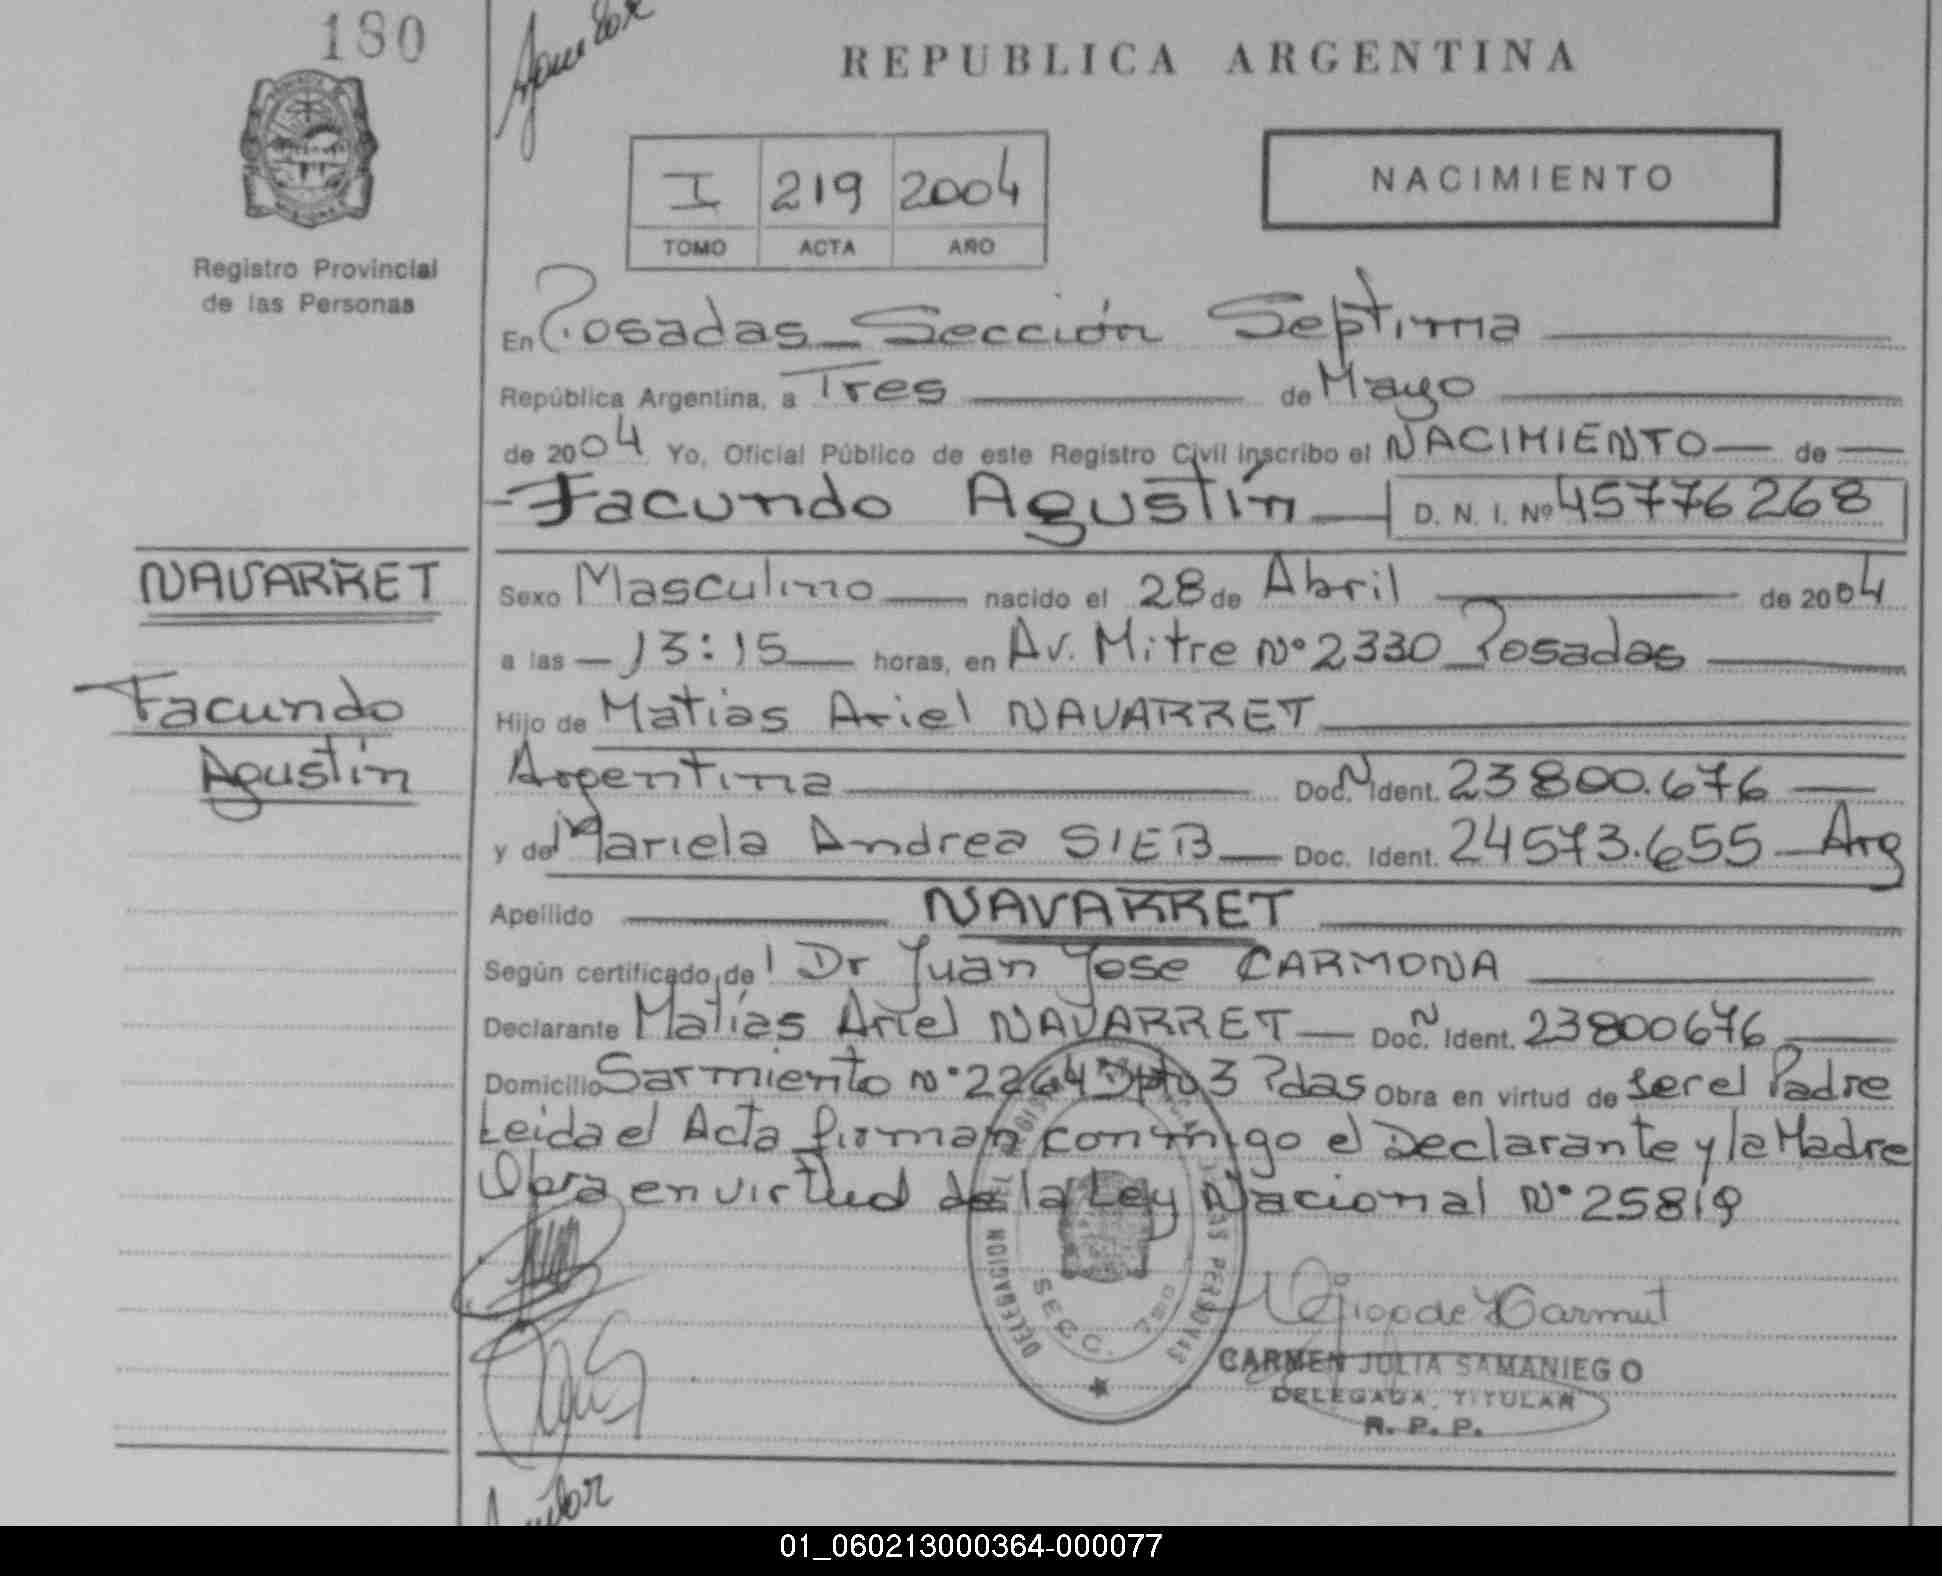 180
REPUBLICA ARGENTINA
I 219 2004
TOMO ACTA AÑO
NACIMIENTO
Registro Provincial
de las Personas
En Posadas_ Sección Septima
República Argentina, a Tres de Mayo
de 2004 Yo, Oficial Público de este Registro Civil inscribo el NACIMIENTO de
Facundo Agustín D. N. I. Nº 45776268
NAVARRET
Facundo
Agustín
Sexo Masculino nacido el 28 de Abril de 2004
a las 13:15 horas, en Av. Mitre Nº 2330 Posadas
Hijo de Matias Ariel NAVARRET
Argentina Doc. N Ident. 23800.676
y de Mariela Andrea SIEB Doc. Ident. 24573.655 Arg
Apellido NAVARRET
Según certificado de l Dr Juan Jose CARMONA
Declarante Matías Ariel NAVARRET Doc. N Ident. 23800676
Domicilio Sarmiento Nº 2264 3 Pdas Obra en virtud de ser el Padre
Leida el Acta firman conmigo el Declarante y la Madre
Obra en virtud de la Ley Nacional Nº 25819
DELEGACION
SECC.
CARMEN JULIA SAMANIEGO
DELEGADA TITULAR
R. P. P.
01_060213000364-000077